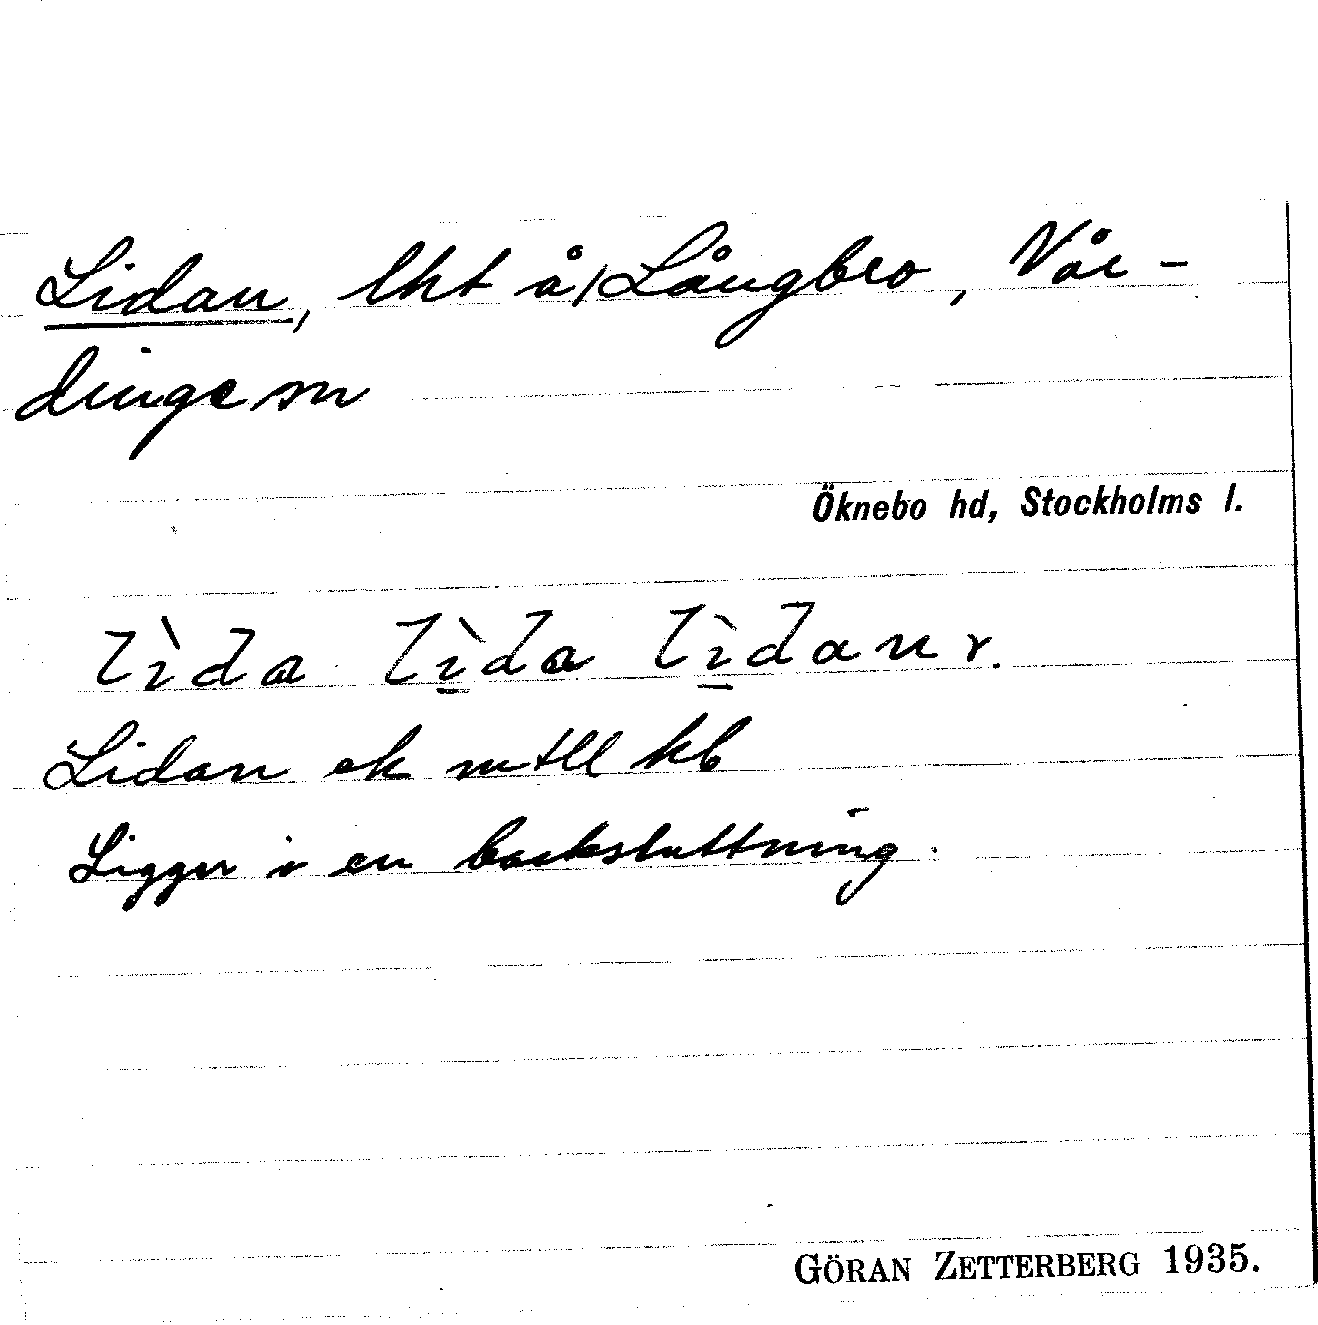 Lidan, lht å/ Långbro, Vår-
dinge sn
Öknebo hd, Stockholms l.
lìda lìda lìdanr.
Lidan ek mtll kb
Ligger i en backsluttning.
GÖRAN ZETTERBERG 1935.